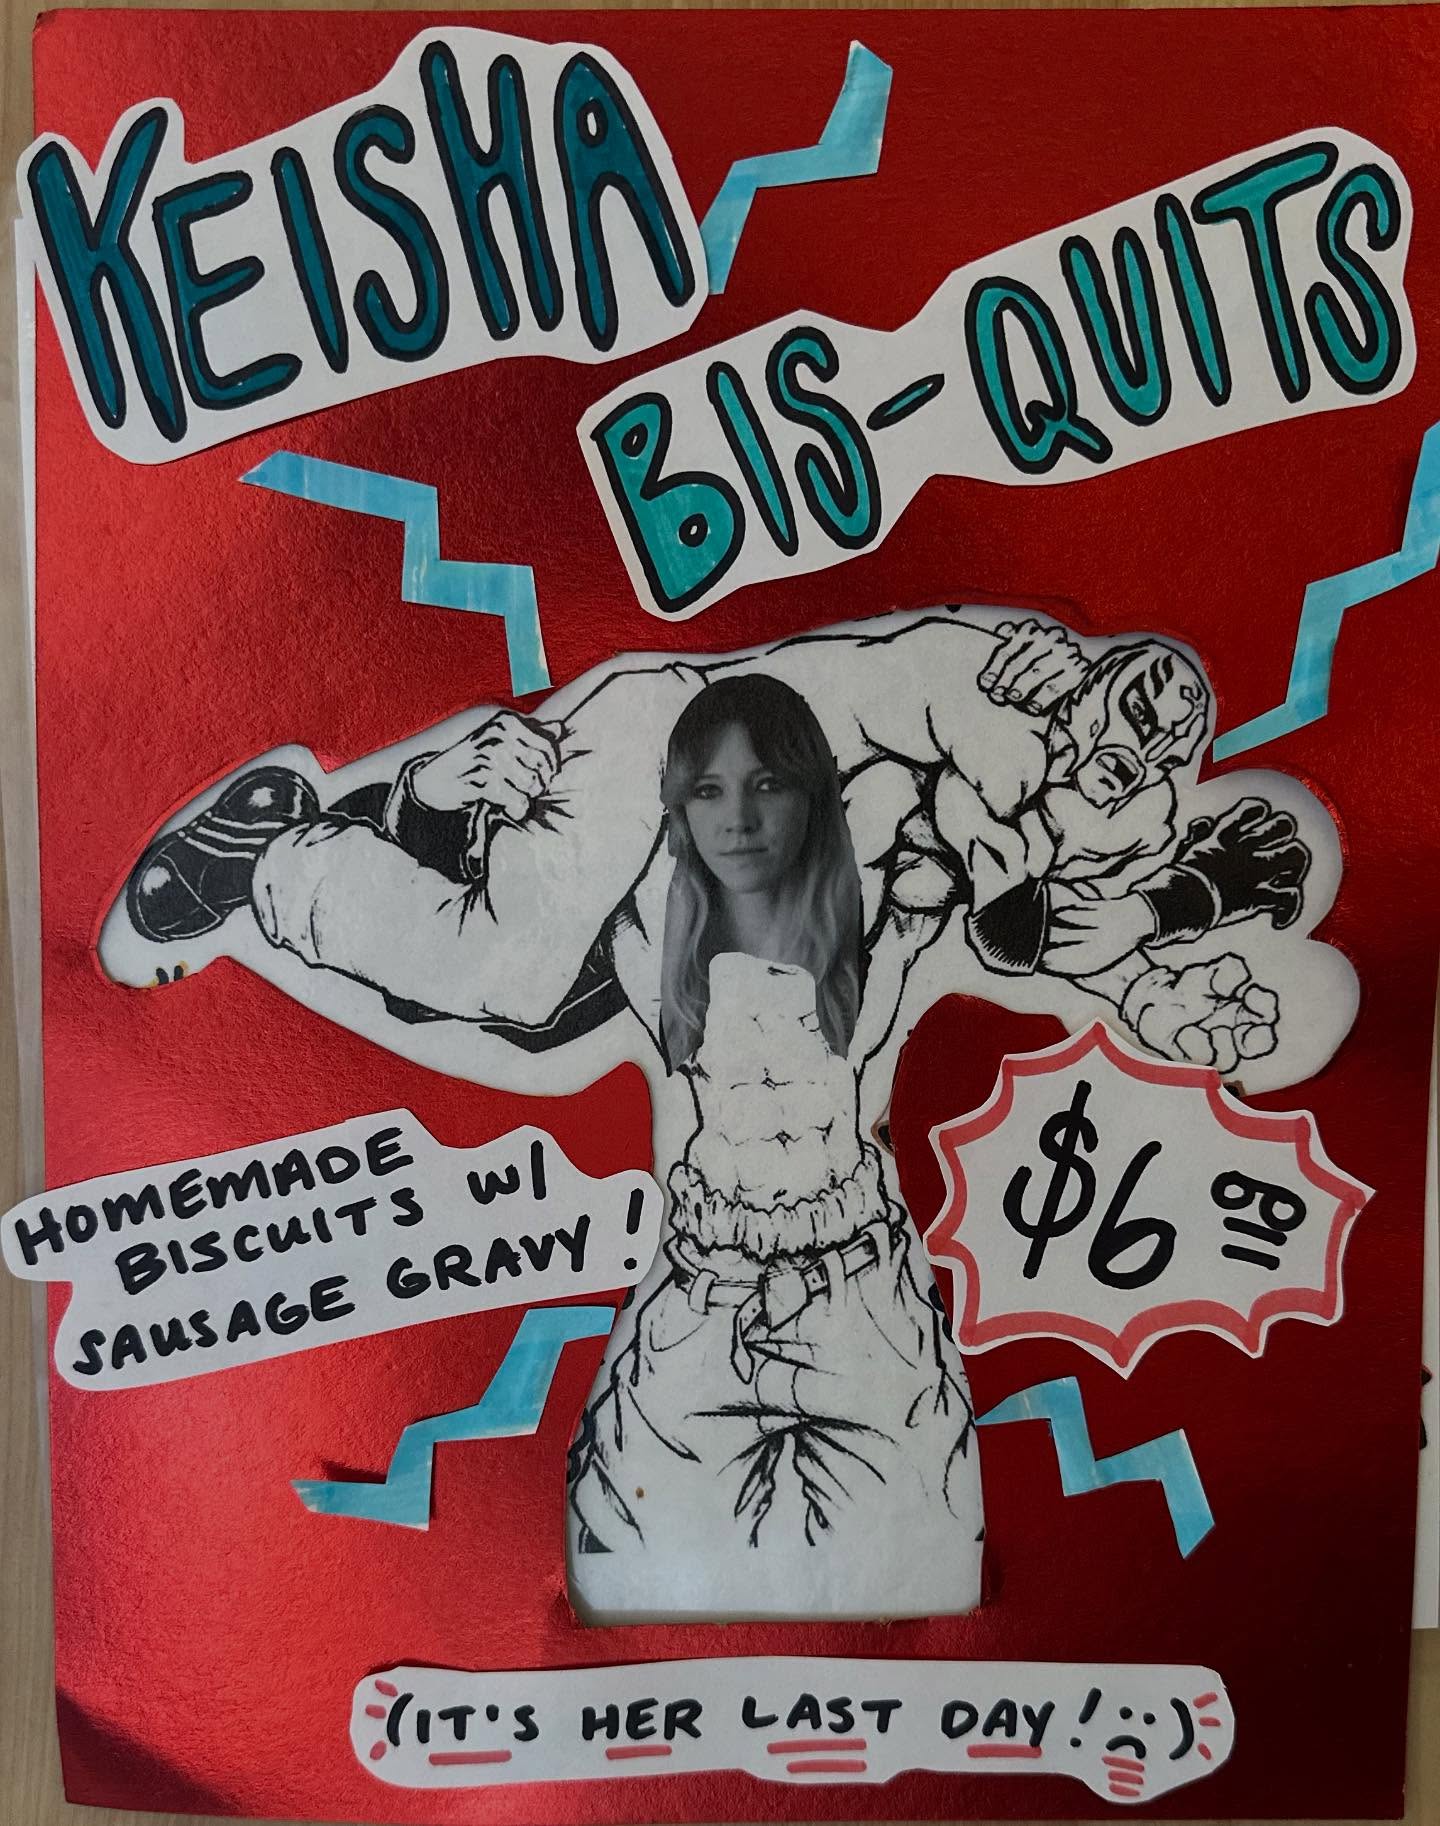 KEISHA
BIS-QUITS
HOMEMADE
BISCUITS w/
SAUSAGE GRAVY!
$6
(IT'S HER LAST DAY! :()